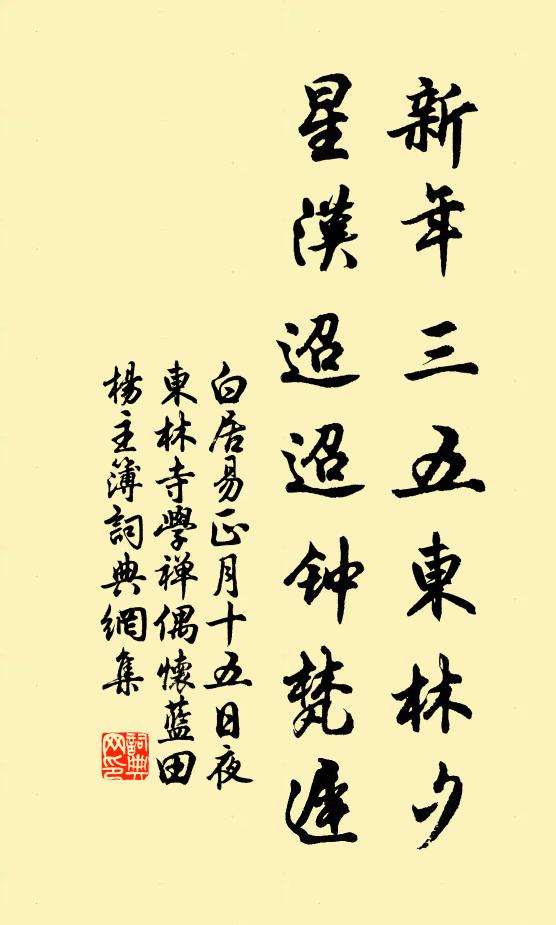 新年三五東林夕
星漢迢迢钟梵遲
白居易正月十五日夜
東林寺學禅偶懷藍田
楊主簿詞典網集
詞典网印